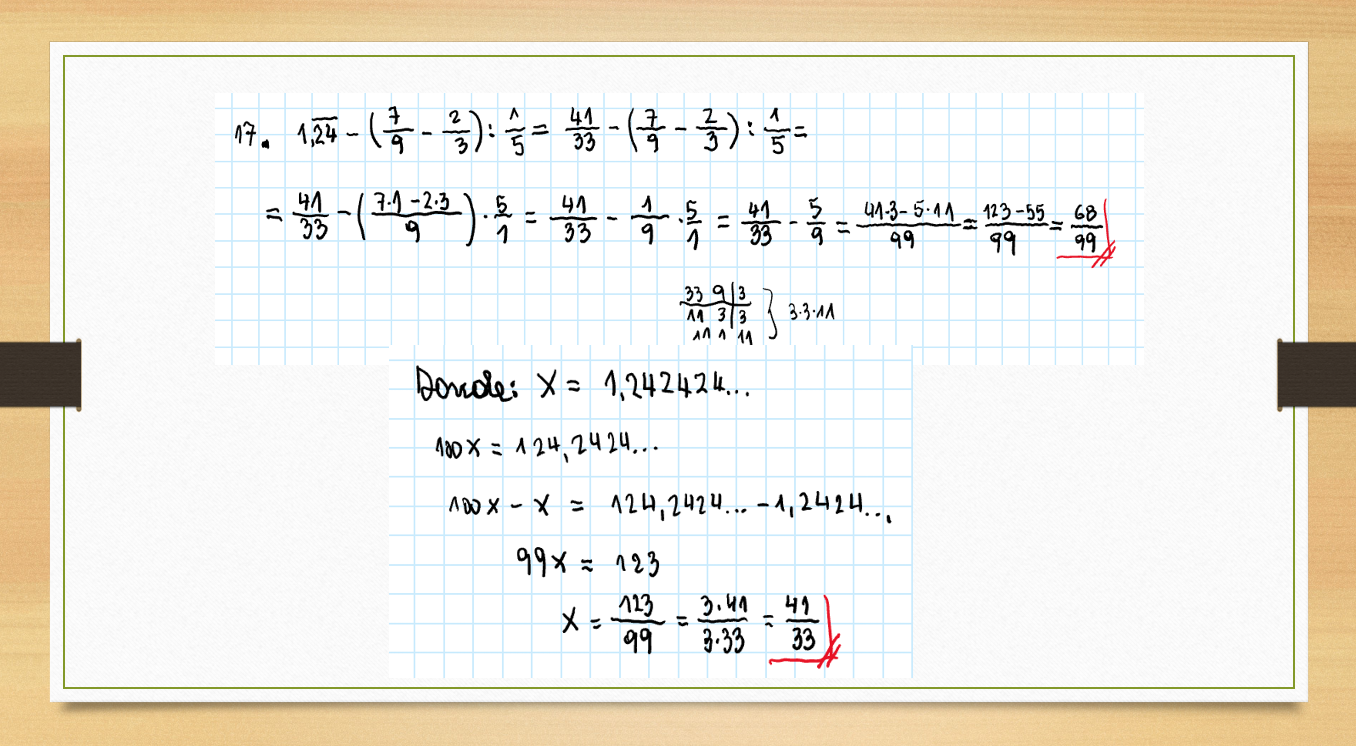 17. 1,2̅4̅ - (7/9 - 2/3) : 1/5 = 41/33 - (7/9 - 2/3) : 1/5 =
= 41/33 - ((7·1 - 2·3)/9) · 5/1 = 41/33 - 1/9 · 5/1 = 41/33 - 5/9 = (41·3 - 5·11)/99 = (123 - 55)/99 = 68/99
33 9 | 3
11 3 | 3 } 3·3·11
11 1 11
Donde: X = 1,242424...
100X = 124,2424...
100X - X = 124,2424... - 1,2424...
99X = 123
X = 123/99 = 3·41/3·33 = 41/33